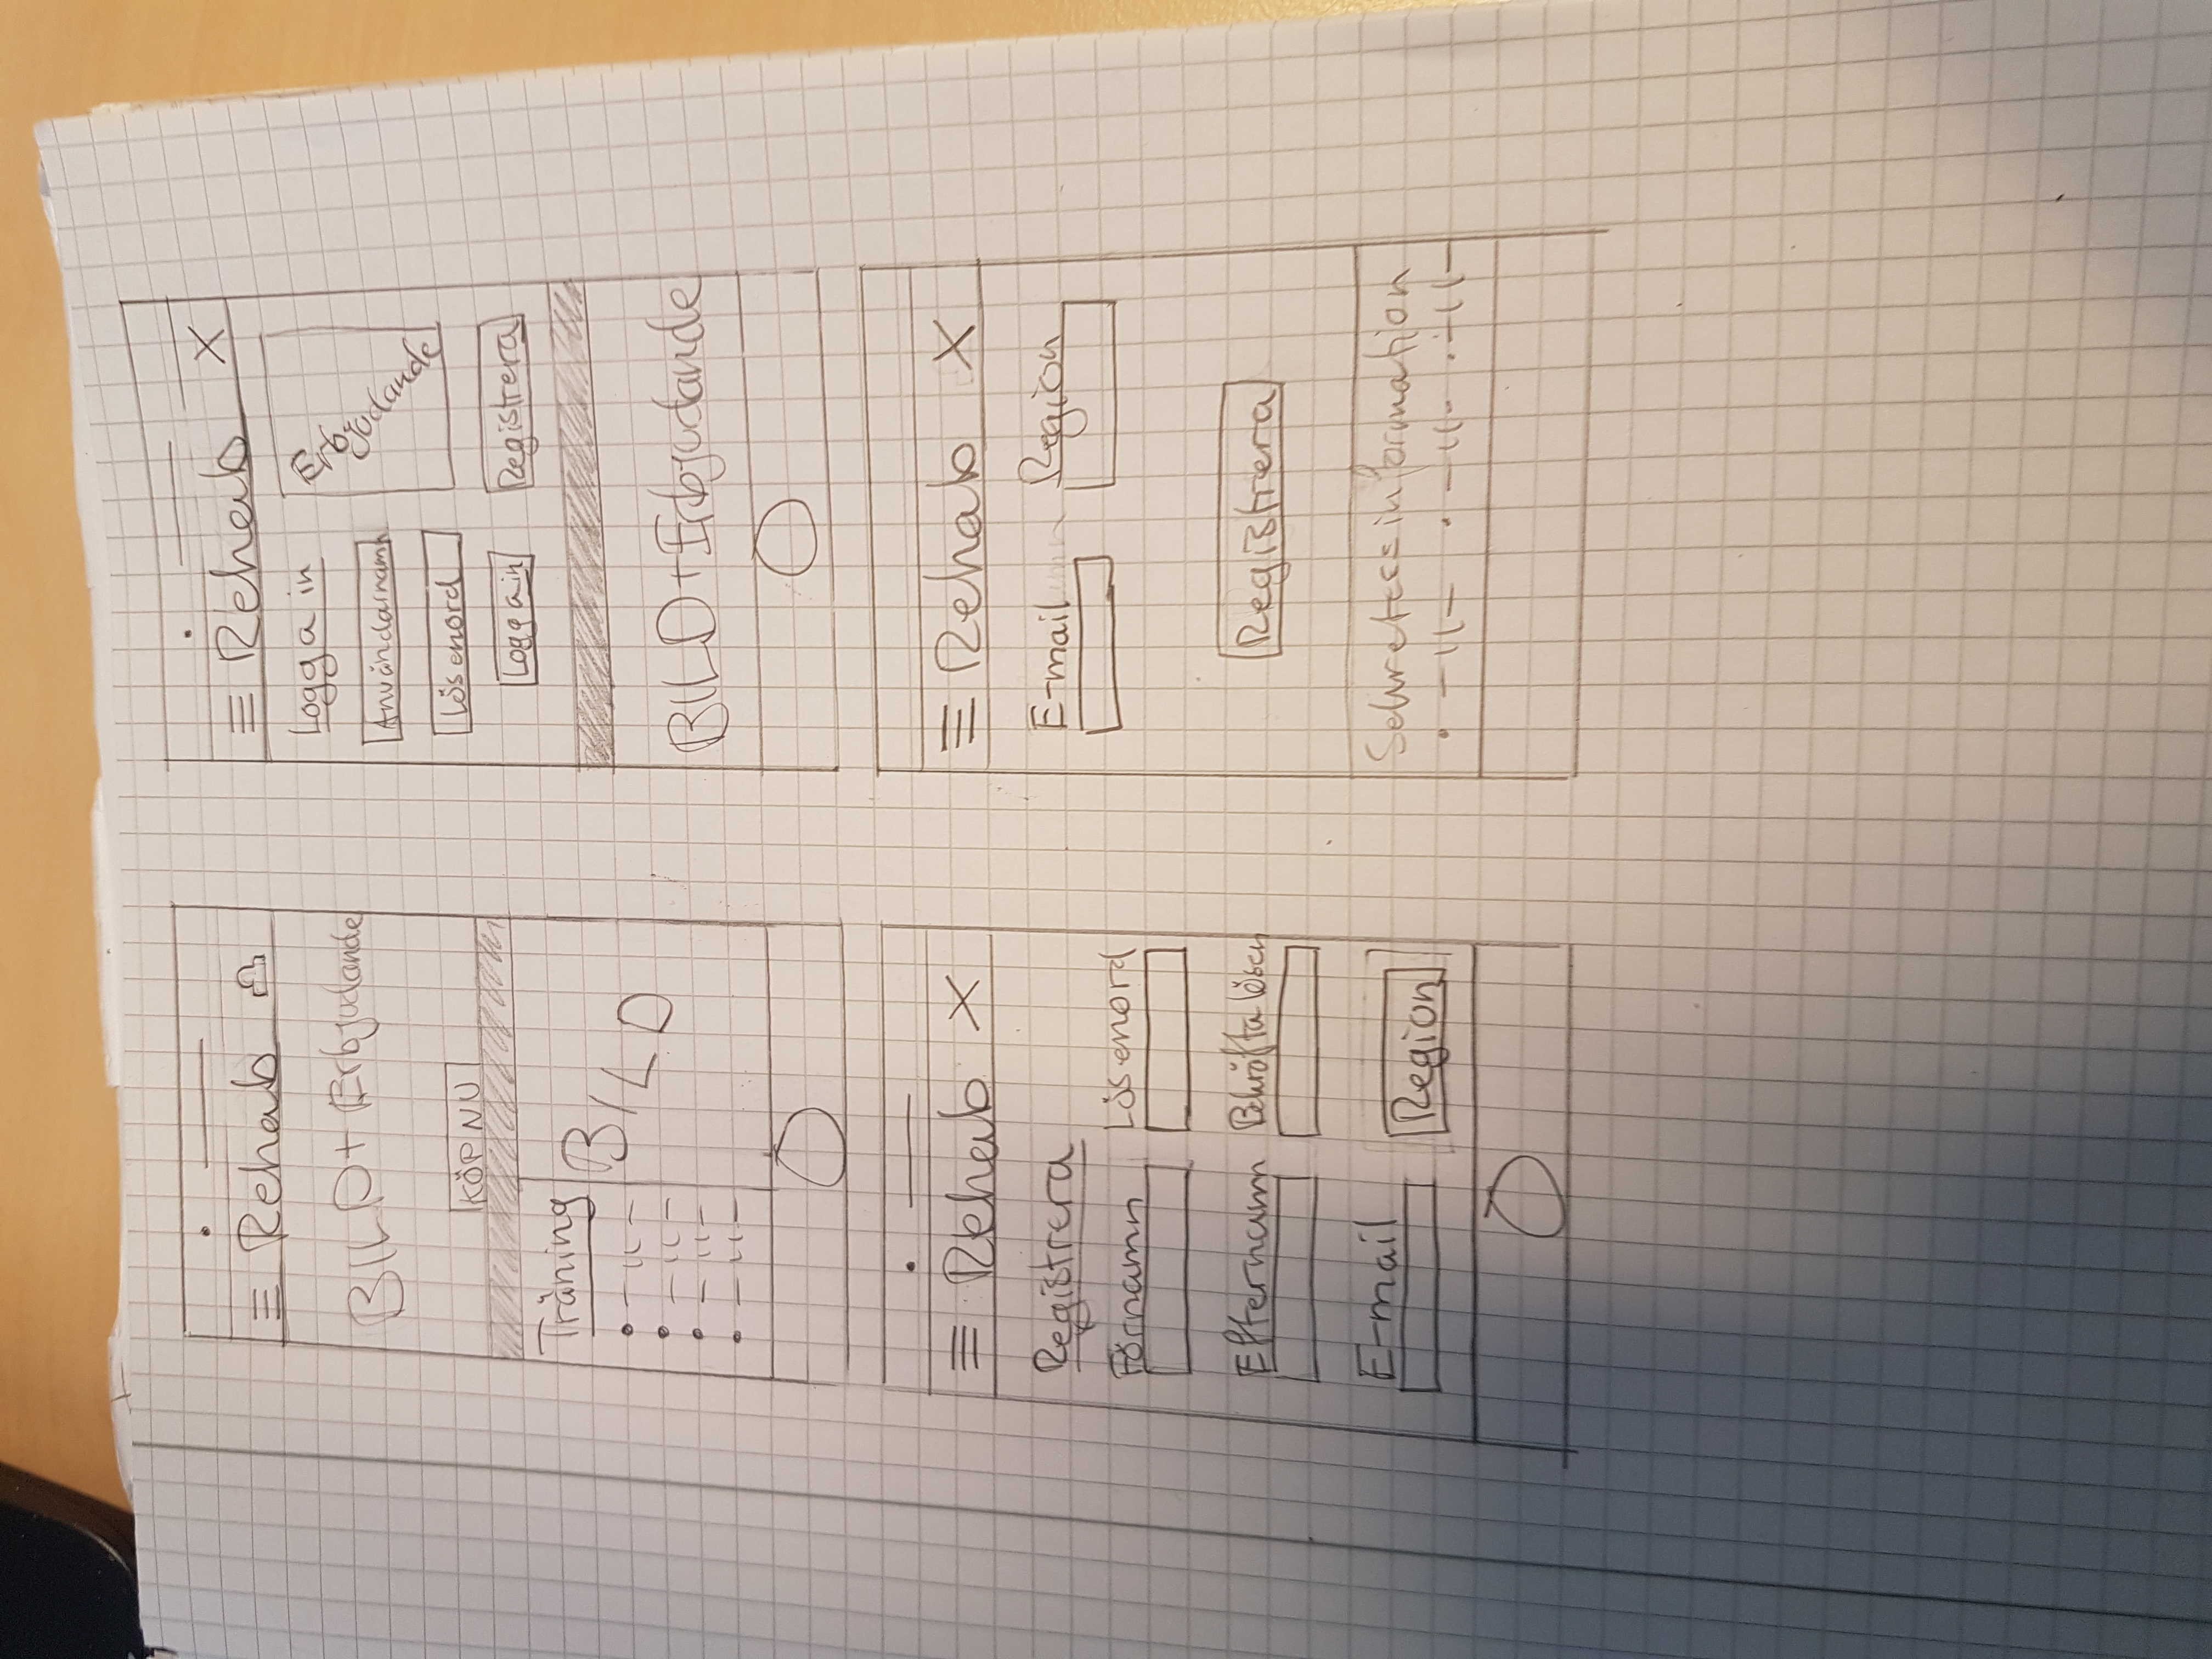 Rehab
BILD + Erbjudande
KÖP NU
Träning
BILD
Rehab X
Logga in
Erbjudande
Användarnamn
Lösenord
Logga in
Registrera
BILD + Erbjudande
Rehab X
Registrera
Förnamn Lösenord
Efternamn Bekräfta lösen
E-mail
Region
Rehab X
E-mail Region
Registrera
Sekretessinformation